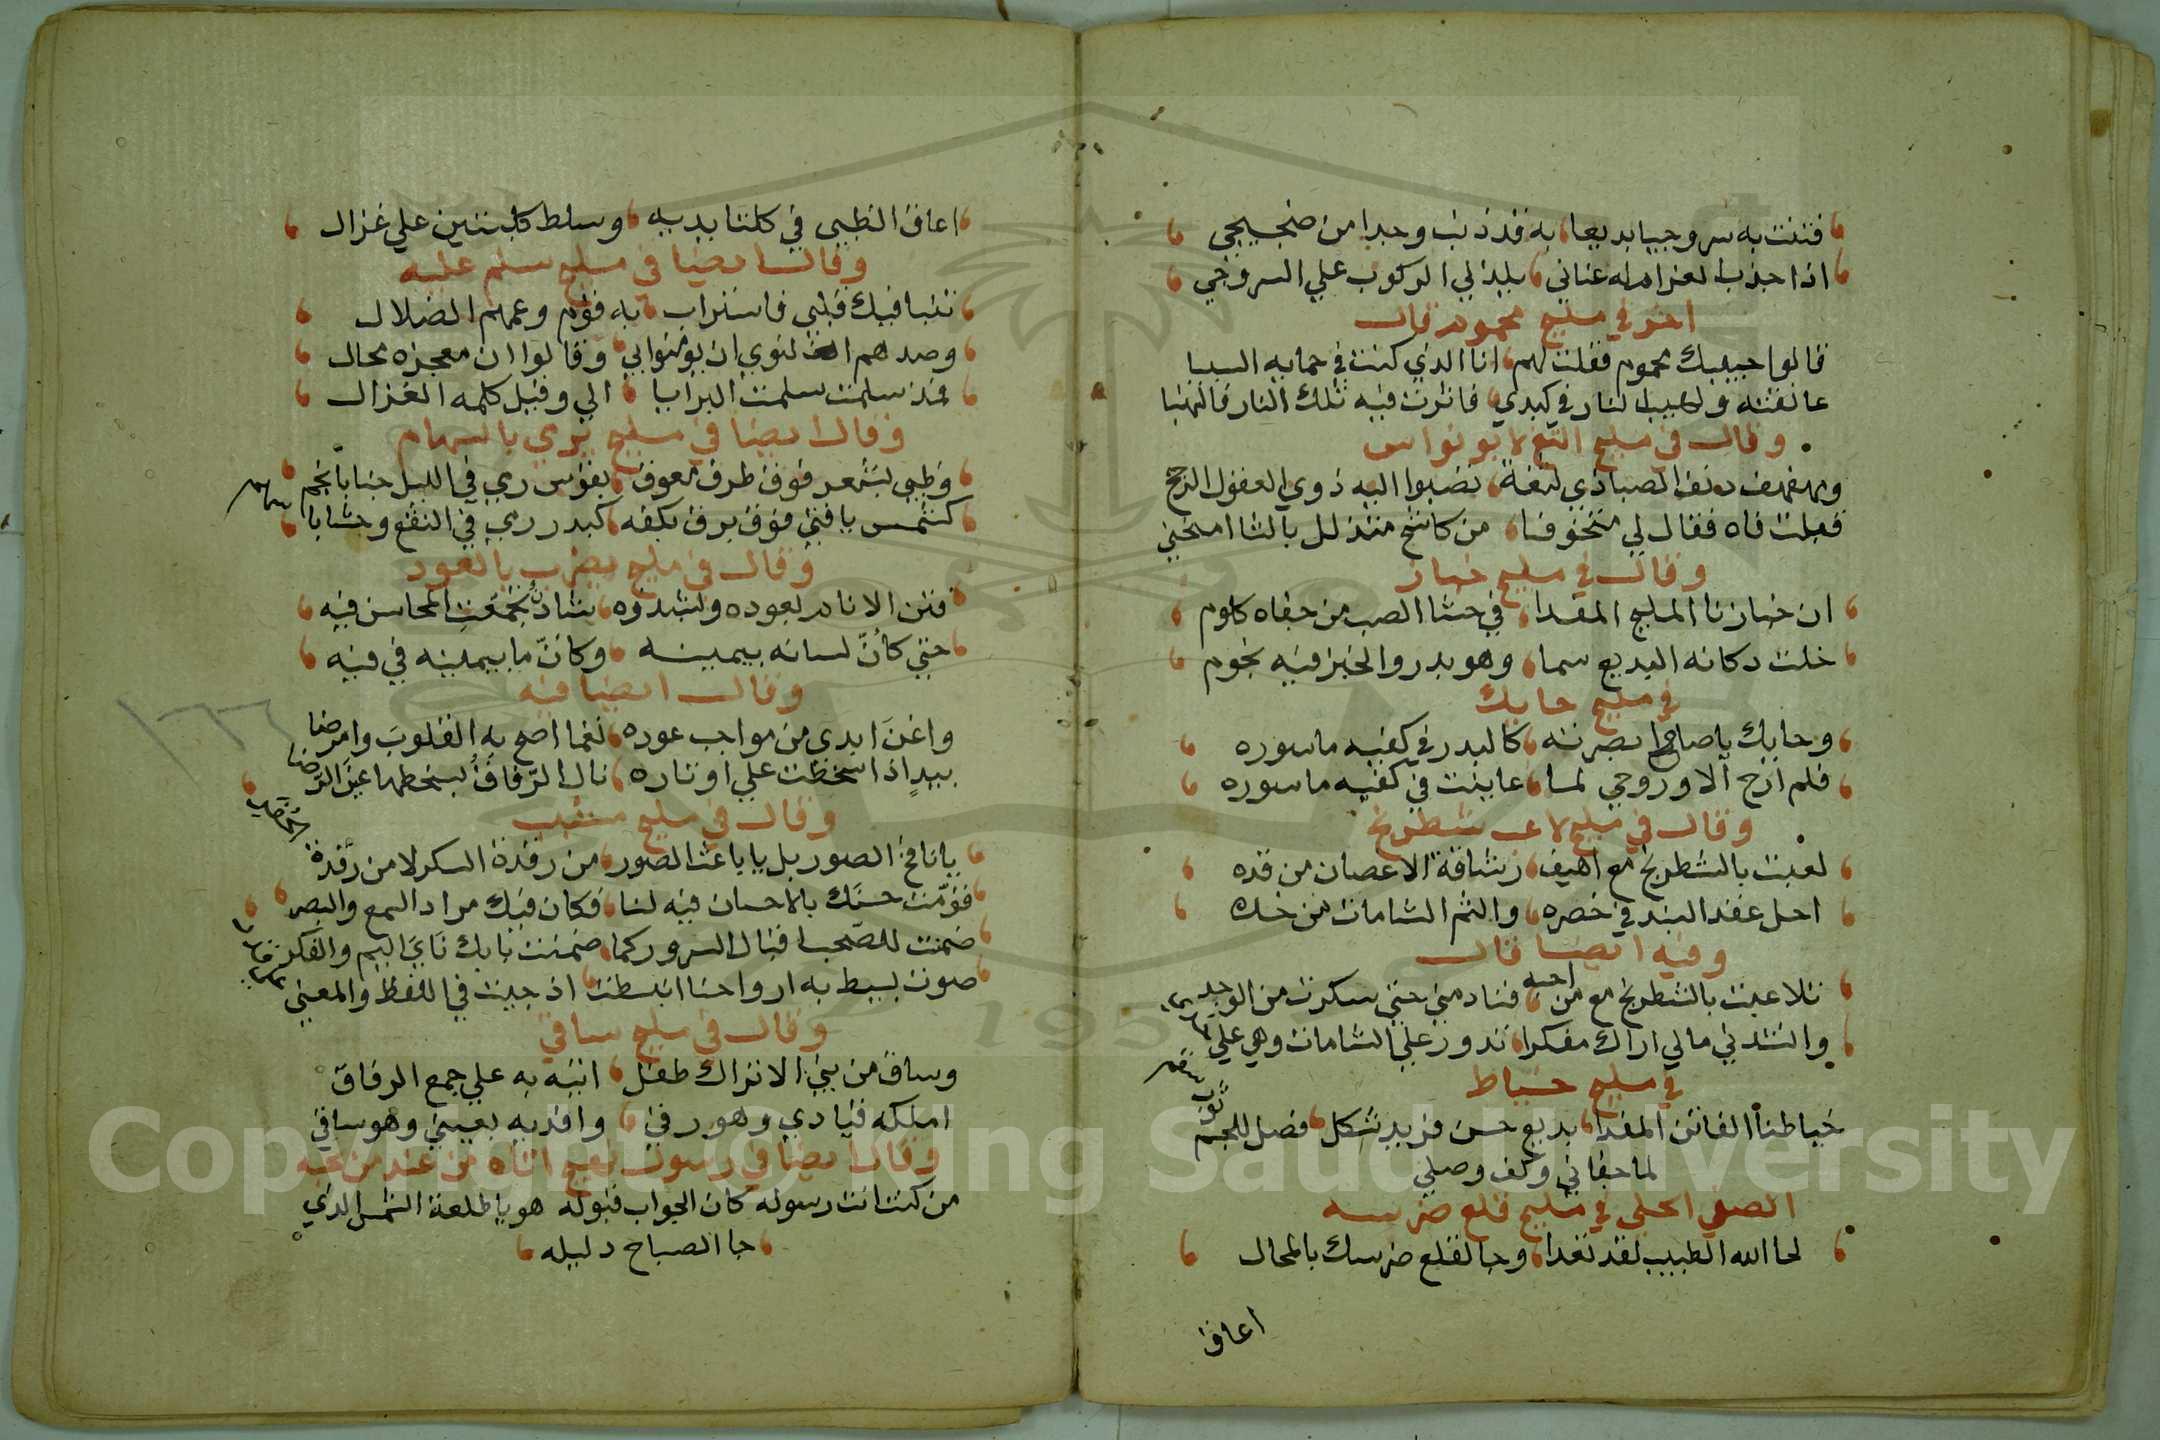 فتنت به سروجيا بديعا به قد ذبت وجدا من ضجيجي
اذا جذب الغرام له عناني يلذ لي الركوب علي السروجي
اخر في مليح محموم قال
قالوا حبيبك محموم فقلت لهم انا الذي كنت في حمايه السببا
عانقته ولهيب النار في كبدي فاثرت فيه تلك النار فالتهبا
وقال في مليح التغ لابو نواس
ومهفهف دنف الصبا ذي لثغة تصبوا اليه ذوي العقول الرجح
قبلت فاه فقال لي متخوفا من كاشح متذلل بالثا
وقال في مليح خباز
ان خبازنا المليح المفدا في حشا الصب من جفاه كلوم
خلت دكانه البديع سما وهو بدر والخبز فيه نجوم
في مليح حايك
وحايك يا صاح ابصرته كالبدر في كفيه ماسوره
فلم ارح الا وروحي لما عاينت في كفيه ماسوره
وقال في مليح لاعب شطرنج
لعبت بالشطرنج مع اهيف رشاقة الاغصان من قده
احل عقد البند في خصره والثم الشامات من خده
وفيه ايضا قال
تلاعبت بالشطرنج مع من احبه فنادمني حتي سكرت من الوجد
وانشدني مالي اراك مفكرا تدور علي الشامات وهي علي
في مليح خياط
خياطنا الفاتن المفدا بديع حسن فريد شكل فصل للجسم ثوب سقم
لما جفاني وكف وصلي
الصفي الحلي في مليح قلع ضرسه
لحا الله الطبيب لقد تعدا وجا لقلع ضرسك بالمحال
اعاق
اعاق الظبي في كلتا يديه وسلط كلبتين علي غزال
وقال ايضا في مليح سلم عليه
تنبا فيك قلبي فاستراب به قوم وعمهم الضلال
وصدهم النوي ان يومنوا بي وقالوا ان معجزه محال
فمذ سلمت سلمت البرايا الي وقيل كلمه الغزال
وقال ايضا في مليح يرمي بالسهام
وظبي بثغر فوق طرف مفوق بقوس رمي في الليل جنا بانجم سهام
كشمس بافق فوق برق بكفه كبدر رمي في النقع وحشا با
وقال في مليح يضرب بالعود
فتن الانام بعوده وبشدوه شاد تجمعت المحاسن فيه
حتي كان لسانه بيمينه وكان ما بيمينه في فيه
وقال ايضا فيه
واغن ابدي من مواجب عوده نغما اصح به القلوب وامرضا
بيد اذا سخطت علي اوتاره نال الرفاق بسخطها عين الرضا
وقال في مليح مشبب
يا نافخ الصور بل يا باعث الصور من رقدة السكر لا من رقدة
قومت حسنك بالاحسان فيه لنا فكان فيك مراد السمع والبصر
ضمنت للصحب اقبال السرور كما ضمنت نايك ناي الهم والفكر
صوت بسيط به ارواحنا انبسطت اذ جيت في اللفظ والمعني
وقال في مليح ساقي
وساق من بني الاتراك طفل اتيه به علي جمع الرفاق
املكه قيادي وهو رقي وافديه بعيني وهو ساقي
وقال ايضا في رسول مليح اتاه من عند من يحبه
من كنت انت رسوله كان الجواب قبوله هو يا طلعة الشمس الذي
جا الصباح دليله